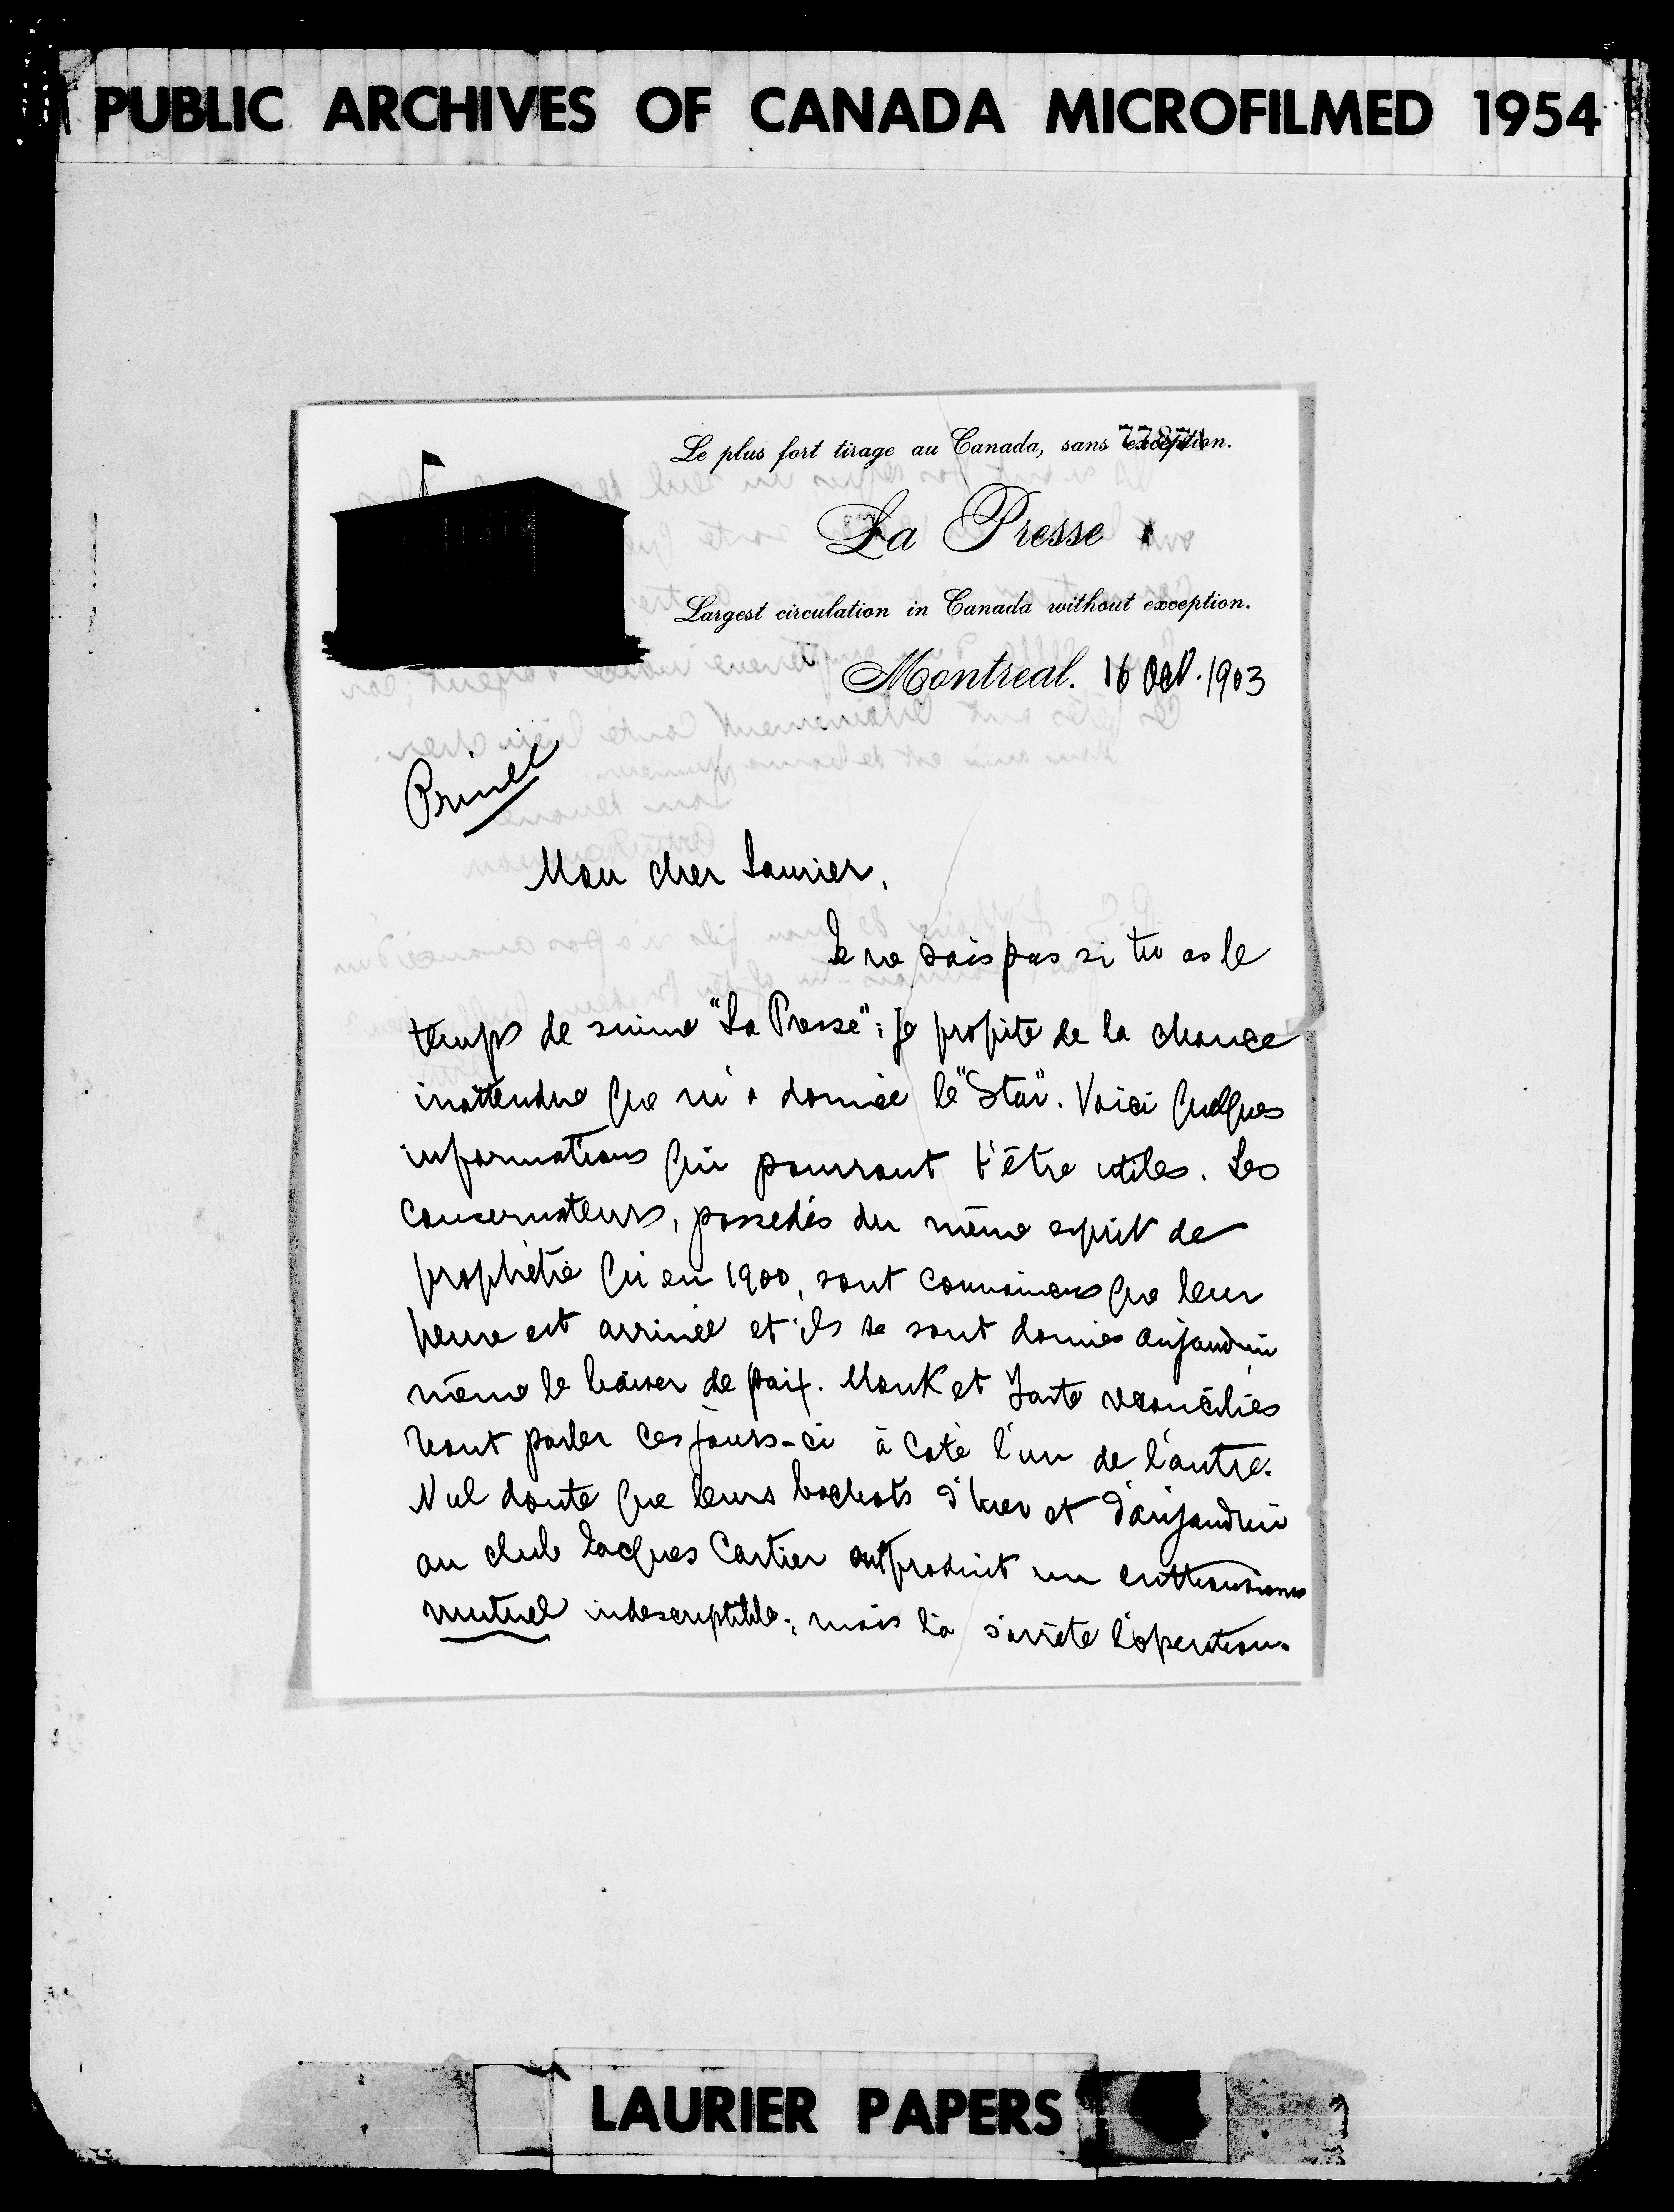 PUBLIC ARCHIVES OF CANADA MICROFILMED 1954
Le plus fort tirage au Canada, sans exception.
La Presse
Largest circulation in Canada without exception.
Montreal. 16 Oct. 1903
Privée
Mon cher Laurier,
Je ne sais pas si tu as le
temps de suivre "La Presse"; je profite de la chance
inattendue que m'a donnée le "Star". Voici quelques
informations qui pourront t'être utiles. Les
conservateurs, possedés du même esprit de
prophétie qu'en 1900, sont convaincus que leur
heure est arrivée et ils se sont donnés aujourd'hui
même le baiser de paix. Monk et Tarte réconciliés
vont parler ces jours-ci à coté l'un de l'autre.
Nul doute que leurs d'hier et d'aujourd'hui
au club Jacques Cartier ont produit un enthousiasme
mutuel indescriptible; mais là s'arrête l'opération.
LAURIER PAPERS